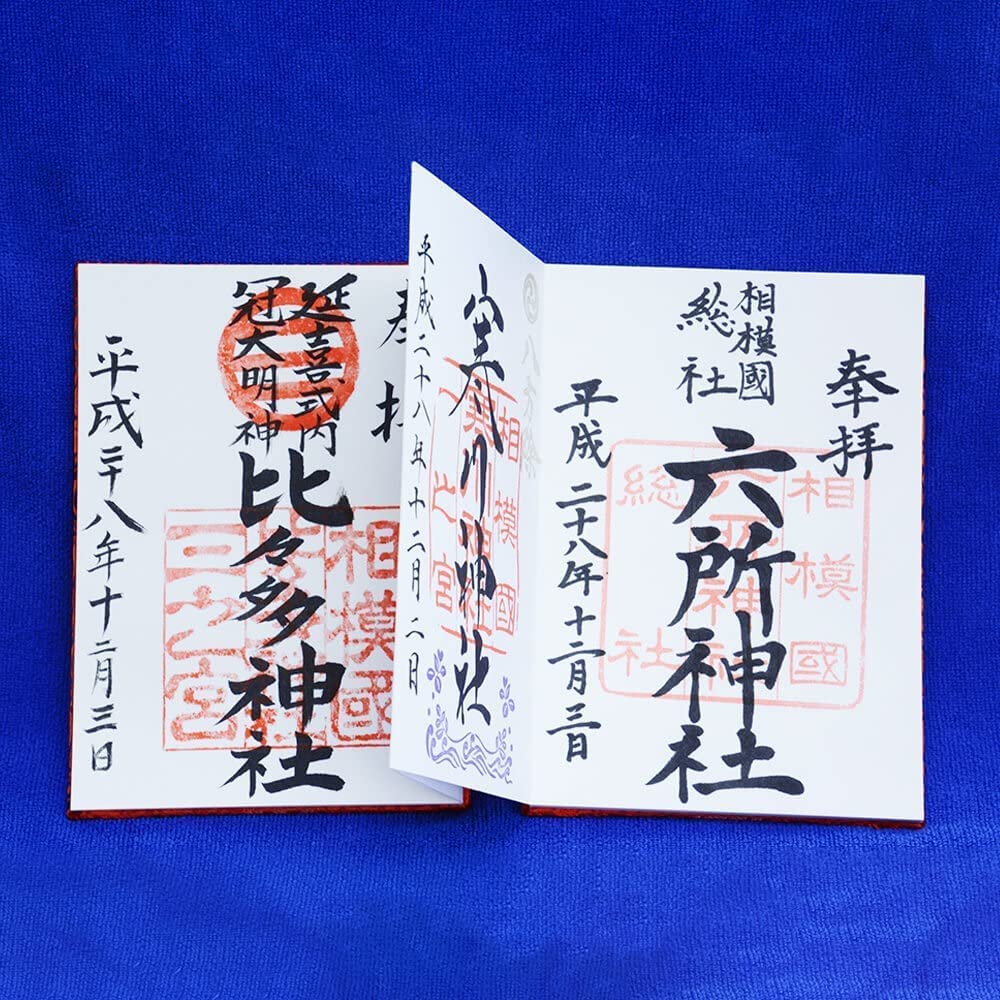 奉拝
相模國
総社
六所神社
相模國
六所神社
総社
平成二十八年十二月三日
八方除
寒川神社
相模國
一之宮
平成二十八年十二月二日
奉拝
延喜式内
冠大明神
比々多神社
相模國
三之宮
平成二十八年十二月三日